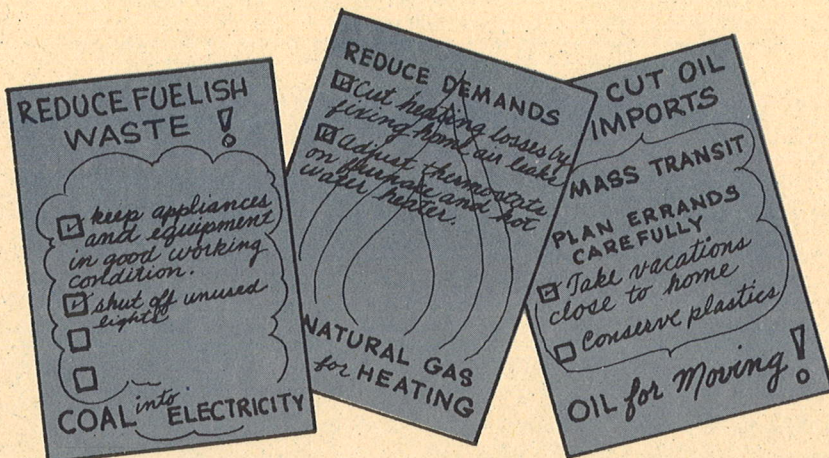 REDUCE FUELISH
WASTE !
keep appliances
and equipment
in good working
condition.
shut off unused
lights
COAL into ELECTRICITY
REDUCE DEMANDS
Cut heating losses by
fixing home air leaks
Adjust thermostats
on furnace and hot
water heater.
NATURAL GAS
for HEATING
CUT OIL
IMPORTS
MASS TRANSIT
PLAN ERRANDS
CAREFULLY
Take vacations
close to home
Conserve plastics
OIL for Moving!